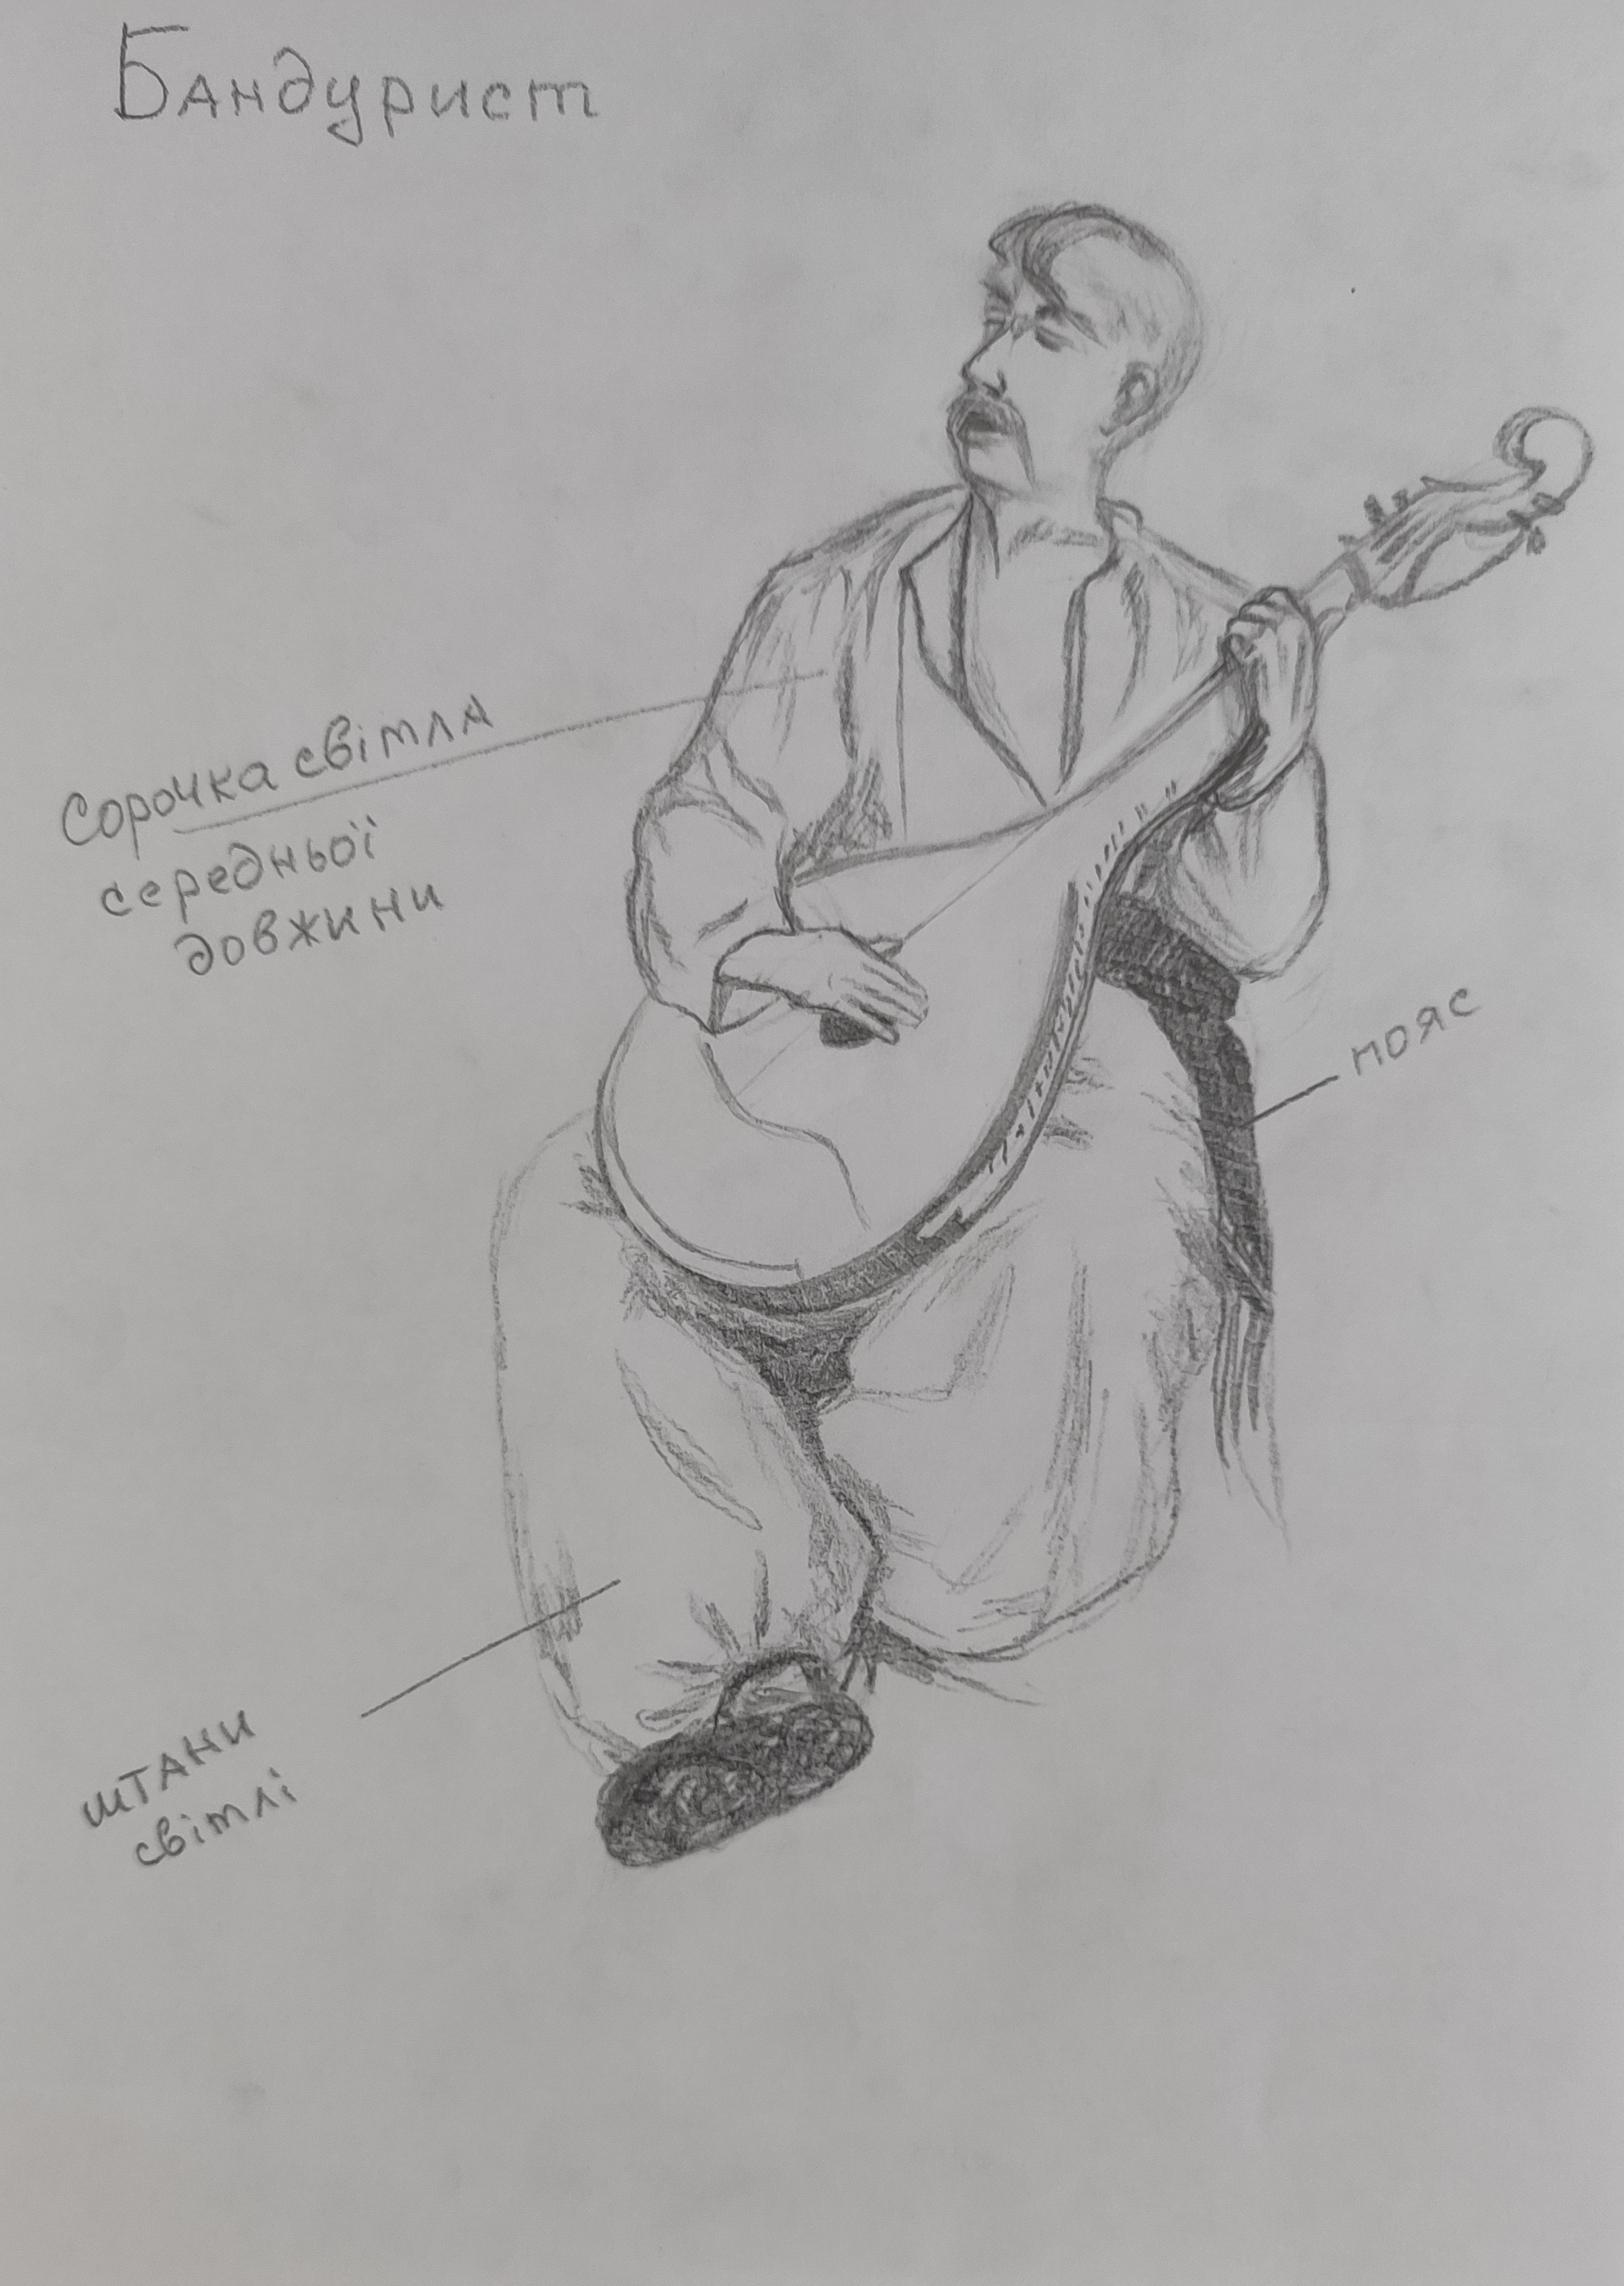 Бандурист
Сорочка світла
середньої
довжини
пояс
штани
світлі